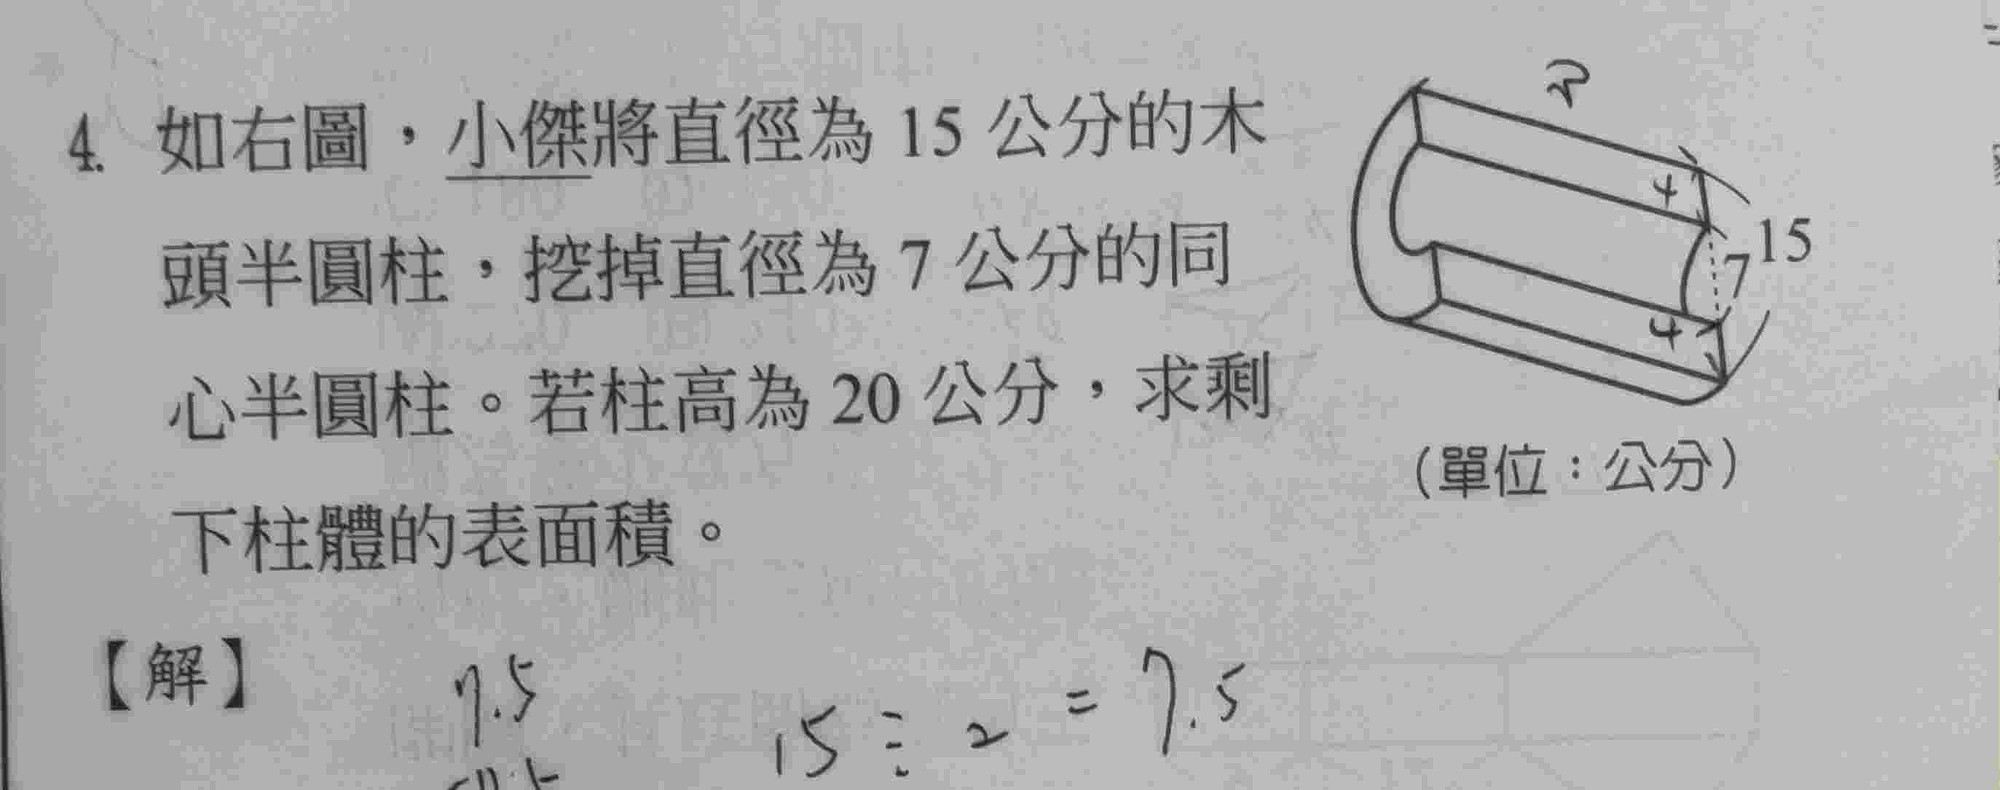 4. 如右圖，小傑將直徑為 15 公分的木
頭半圓柱，挖掉直徑為 7 公分的同
心半圓柱。若柱高為 20 公分，求剩
下柱體的表面積。
4
15
7
4
(單位：公分)
【解】
7.5
15 ÷ 2 = 7.5